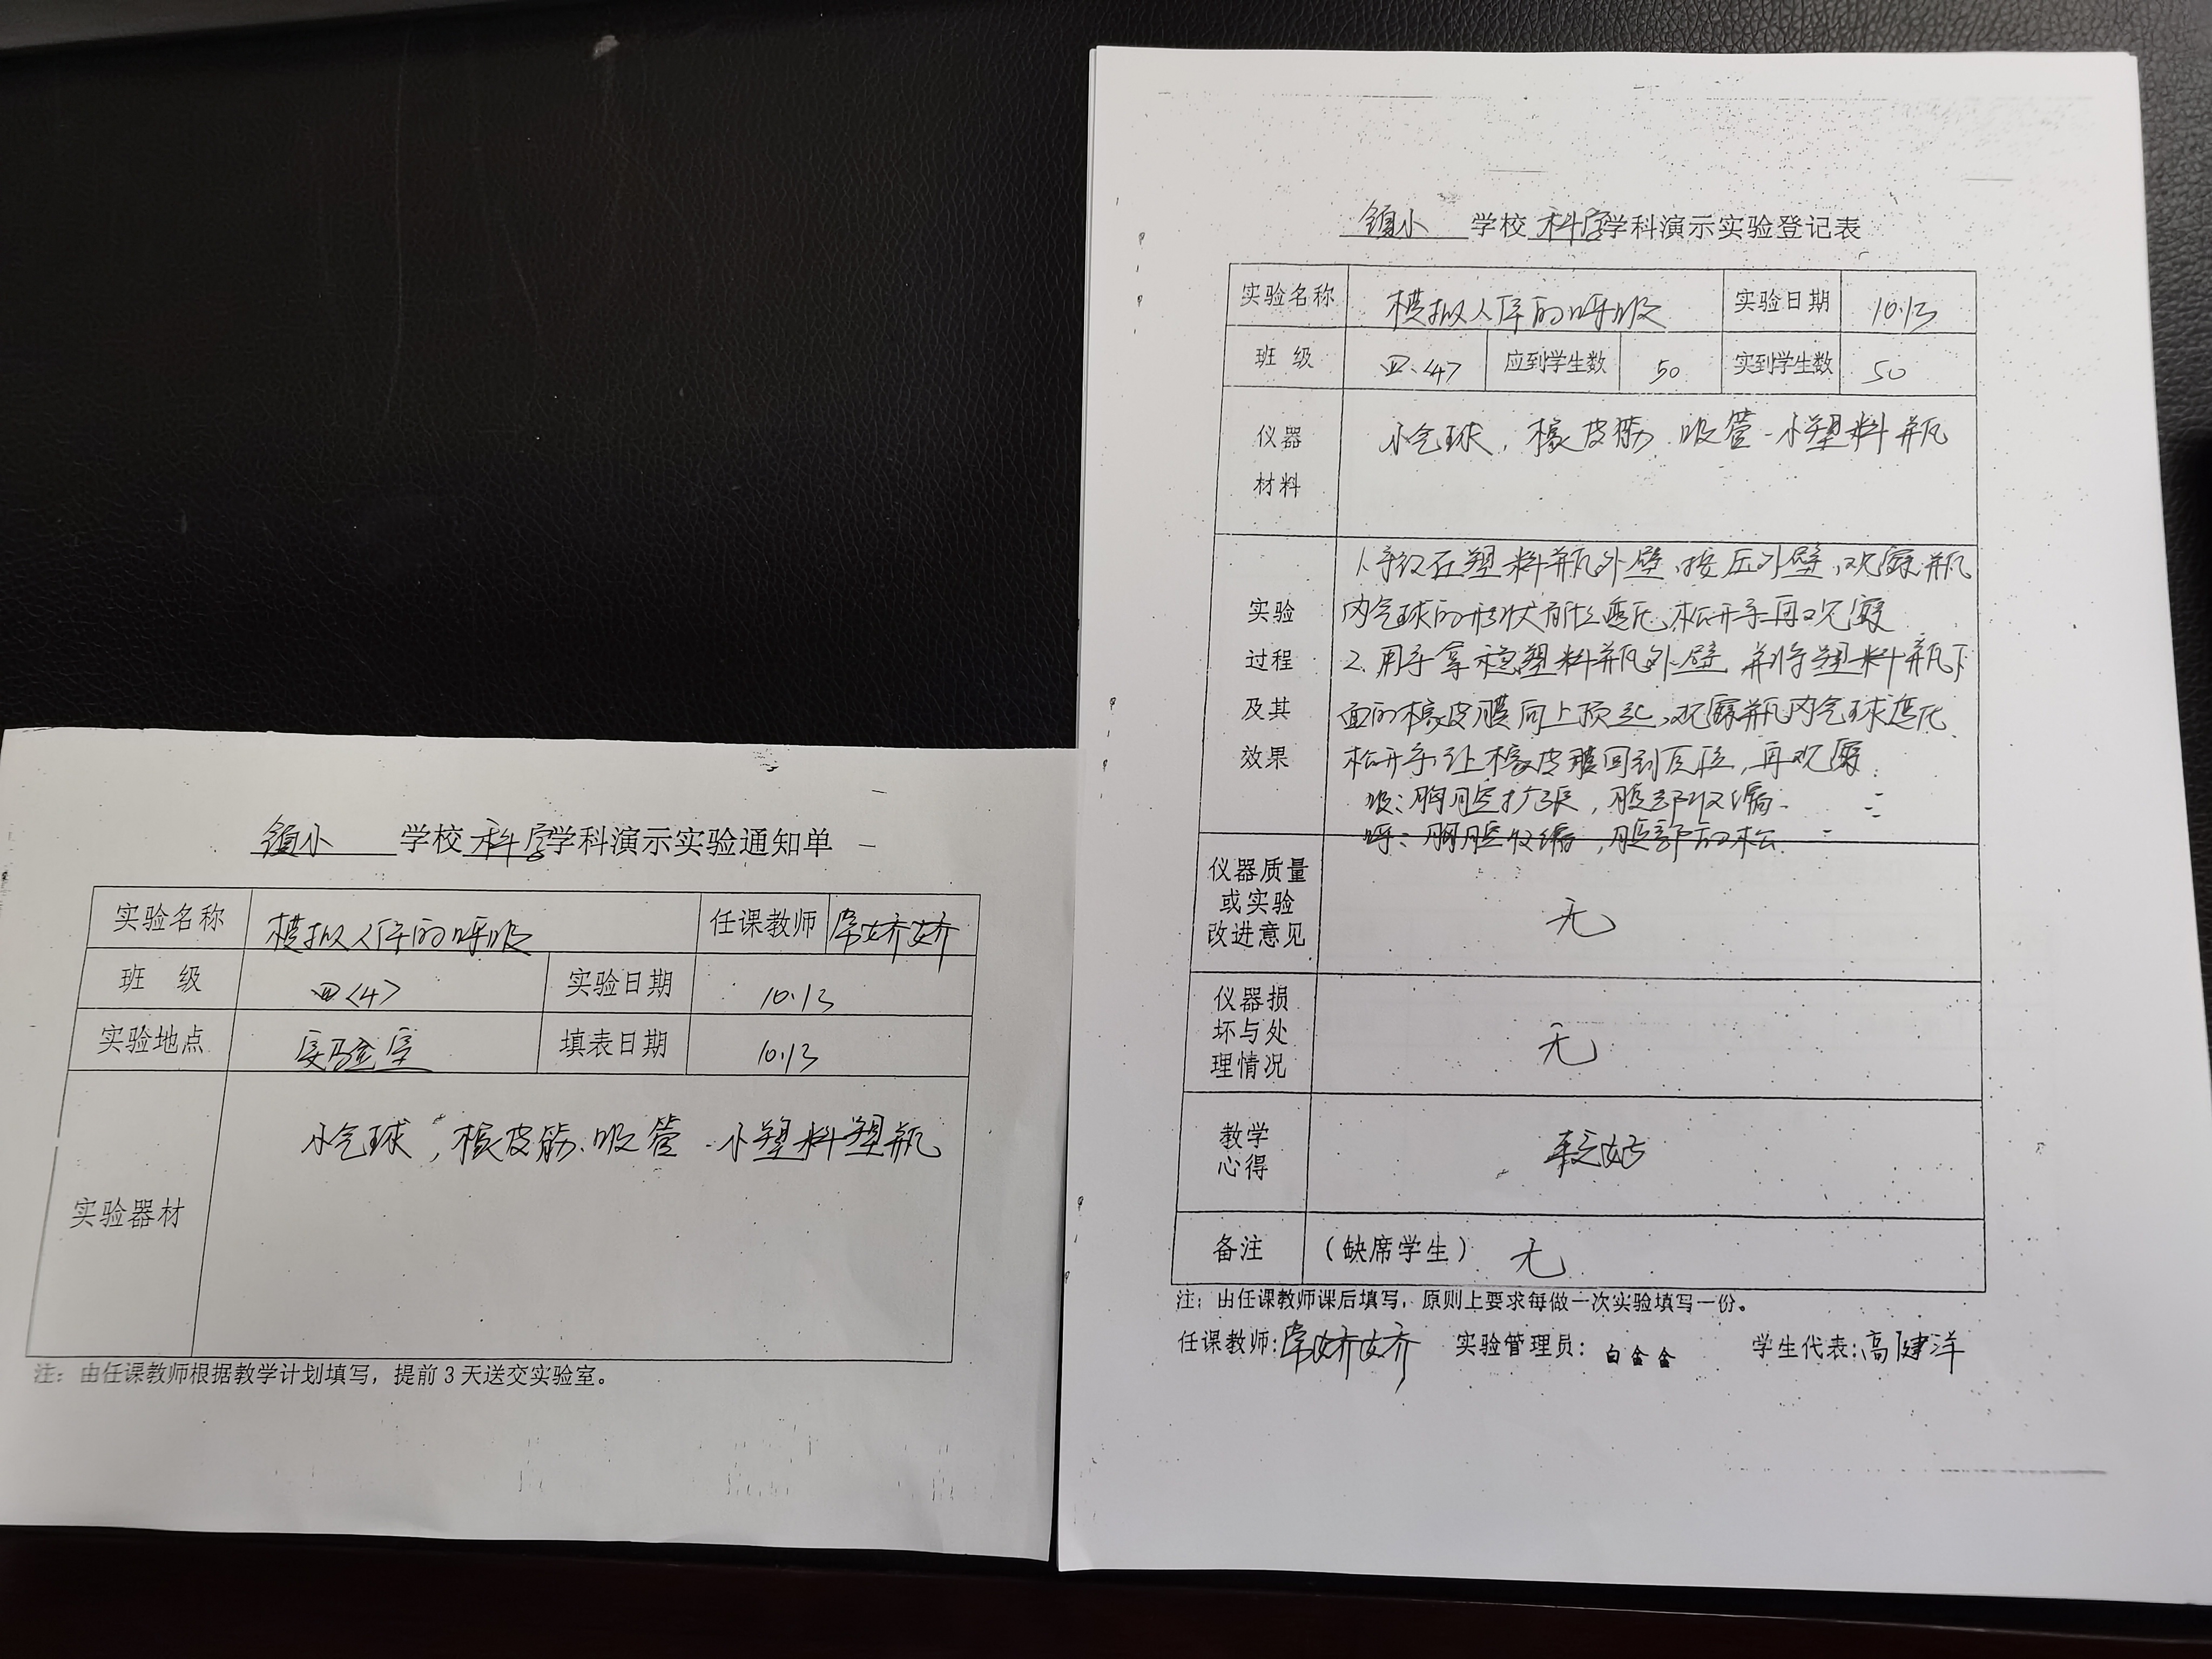 镇小 学校 科学 学科演示实验通知单
实验名称 模拟人体的呼吸 任课教师 常娇娇
班 级 四<4> 实验日期 10.13
实验地点 实验室 填表日期 10.13
实验器材 小气球,橡皮筋、吸管、小塑料塑瓶
注:由任课教师根据教学计划填写,提前3天送交实验室。
镇小 学校 科学 学科演示实验登记表
实验名称 模拟人体的呼吸 实验日期 10.13
班 级 四、<4> 应到学生数 50 实到学生数 50
仪器
材料
小气球,橡皮筋、吸管、小塑料瓶
实验
过程
及其
效果
1.手放在塑料瓶外壁,按压外壁,观察瓶
内气球的形状有什么变化,松开手再观察
2.用手拿稳塑料瓶外壁,并将塑料瓶下
面的橡皮膜向上顶起,观察瓶内气球变化
松开手,让橡皮膜回到原位,再观察
吸:胸腔扩张,腹部收缩
呼:胸腔收缩,腹部放松
仪器质量
或实验
改进意见
无
仪器损
坏与处
理情况
无
教学
心得
较好
备注 (缺席学生) 无
注:由任课教师课后填写,原则上要求每做一次实验填写一份。
任课教师:常娇娇 实验管理员:白金金 学生代表:高健洋